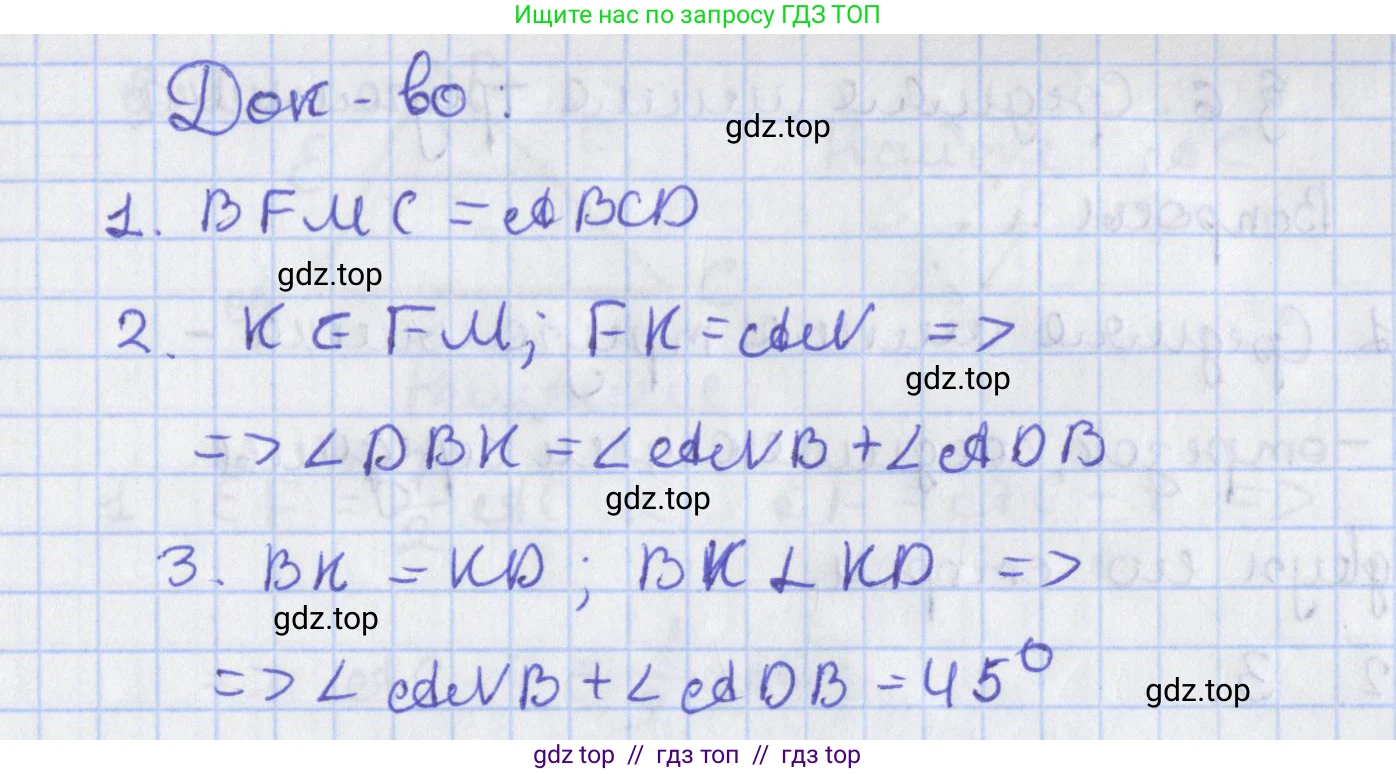 Ищите нас по запросу ГДЗ ТОП
Док-во:
gdz.top
1. BFMC = ABCD
gdz.top
2. K ∈ FM; FK = AN =>
gdz.top
=> ∠DBK = ∠ANB + ∠ADB
gdz.top
3. BK = KD; BK ⊥ KD =>
gdz.top
=> ∠ANB + ∠ADB = 45°
gdz.top
gdz top // гдз топ // гдз top